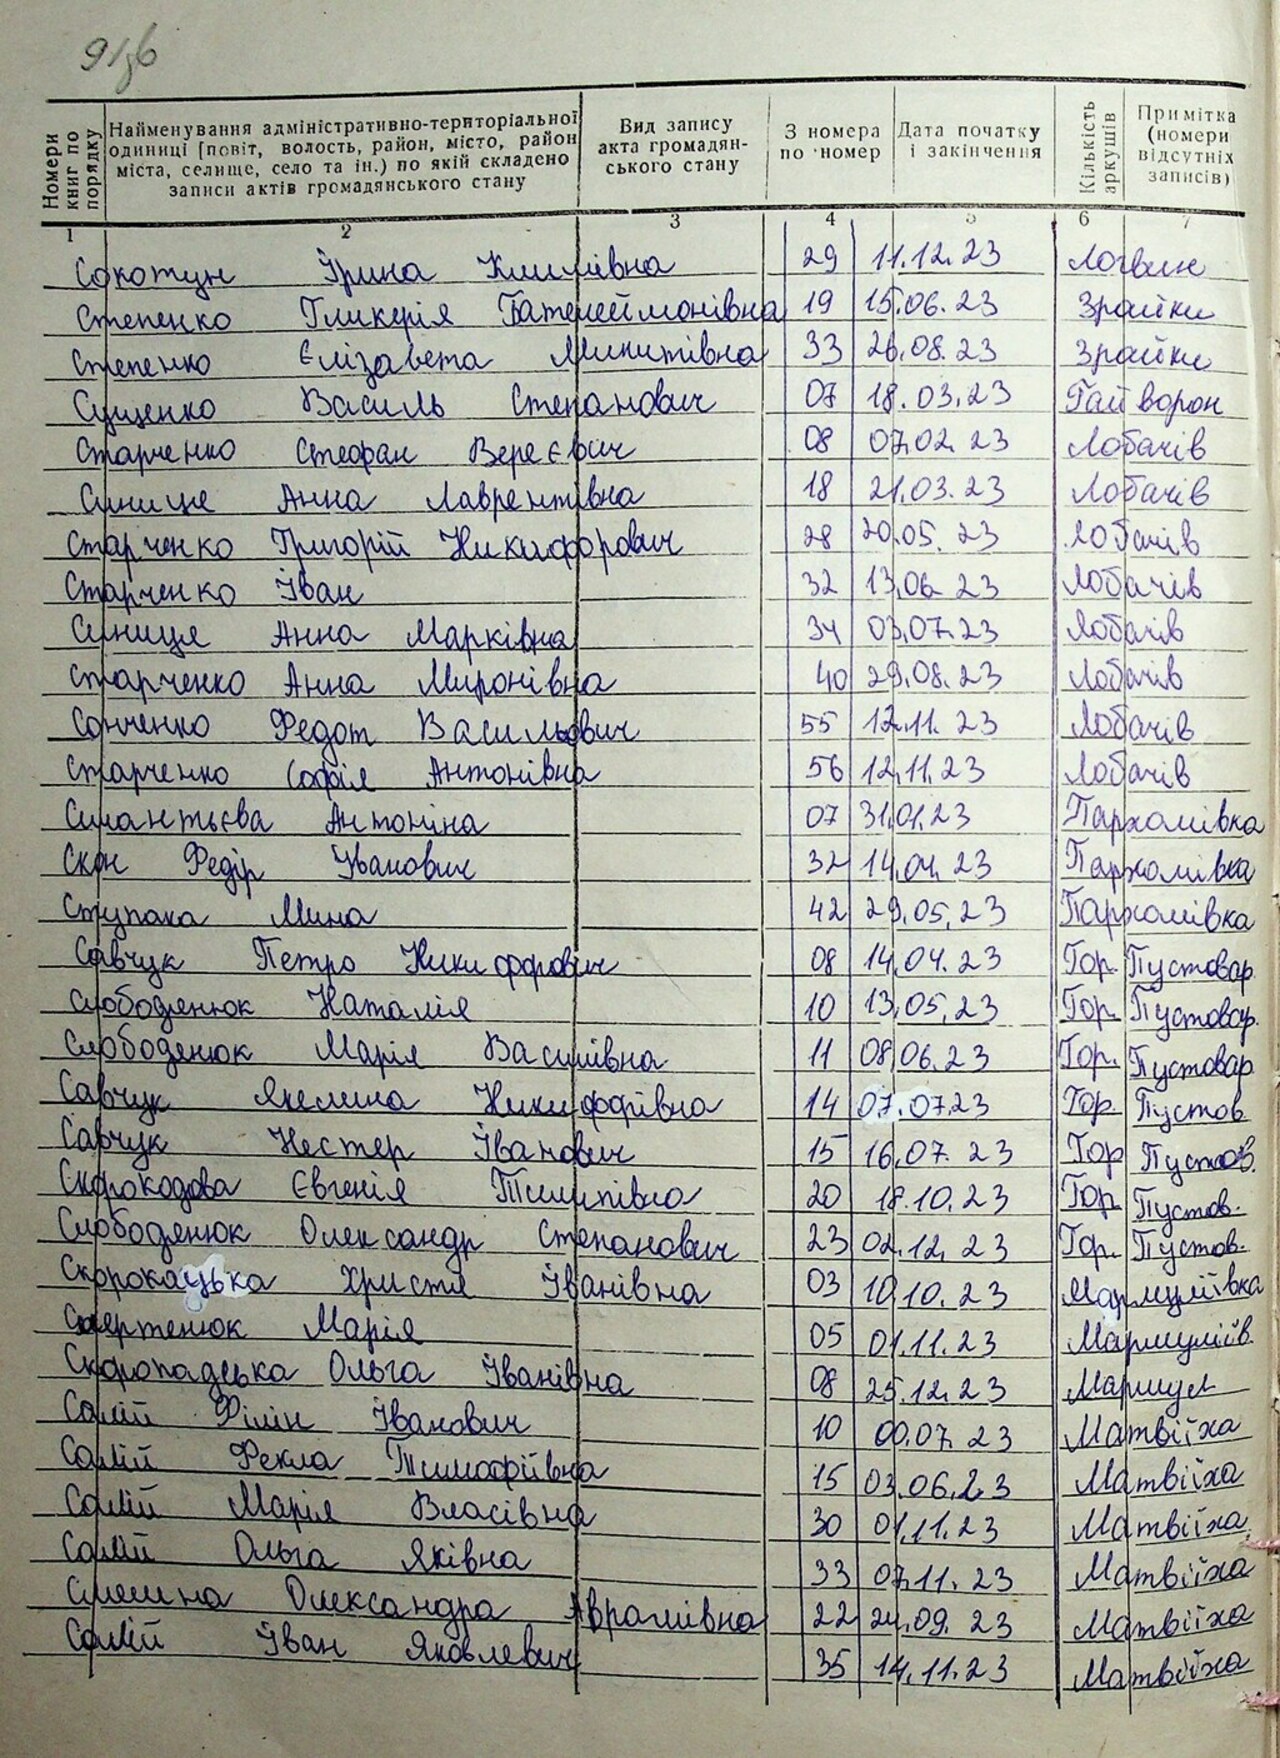 91зв
Номери книг по порядку
Найменування адміністративно-територіальної одиниці [повіт, волость, район, місто, район міста, селище, село та ін.) по якій складено записи актів громадянського стану
Вид запису акта громадян-ського стану
З номера по номер
Дата початку і закінчення
Кількість аркушів
Примітка (номери відсутніх записів)
1 2 3 4 5 6 7
Сокотун Ірина Климівна 29 11.12.23 Логвин
Степенко Гликерія 19 15.06.23 Зрайки
Степенко Єлізавета Микитівна 33 26.08.23 Зрайки
Сущенко Василь Степанович 07 18.03.23 Гайворон
Старченко Стефан 08 07.02.23 Лобачів
Синице Анна Лаврентівна 18 21.03.23 Лобачів
Старченко Григорій Никифорович 28 20.05.23 Лобачів
Старченко Іван 32 13.06.23 Лобачів
Синиця Анна Марківна 34 03.07.23 Лобачів
Старченко Анна Миронівна 40 29.08.23 Лобачів
Сонченко Федот Васильович 55 12.11.23 Лобачів
Старченко Софія Антонівна 56 12.11.23 Лобачів
Силантьєва Антоніна 07 31.01.23 Пархомівка
Скон Федір Іванович 32 14.04.23 Пархомівка
Ступака Мина 42 29.05.23 Пархомівка
Савчук Петро Никифорович 08 14.04.23 Гор. Пустовар
Слободенюк Наталія 10 13.05.23 Гор. Пустовар.
Слободенюк Марія Василівна 11 08.06.23 Гор. Пустовар
Савчук Якелина Никифорівна 14 07.07.23 Гор. Пустов.
Савчук Нестер Іванович 15 16.07.23 Гор Пустов.
Скорокодова Євгенія Пилипівна 20 18.10.23 Гор Пустов.
Слободенюк Олександр Степанович 23 02.12.23 Гор. Пустов.
Скорокацька Христя Іванівна 03 10.10.23 Мармуліївка
Смертенюк Марія 05 01.11.23 Мармуліїв.
Скоропадська Ольга Іванівна 08 25.12.23 Мармул
Салій Філін Іванович 10 00.07.23 Матвіїха
Салій Фекла Тимофіївна 15 03.06.23 Матвіїха
Салій Марія Власівна 30 01.11.23 Матвіїха
Салій Ольга Яківна 33 07.11.23 Матвіїха
Смелина Олександра Аврамівна 22 24.09.23 Матвіїха
Салій Іван Яковлевич 35 14.11.23 Матвіїха